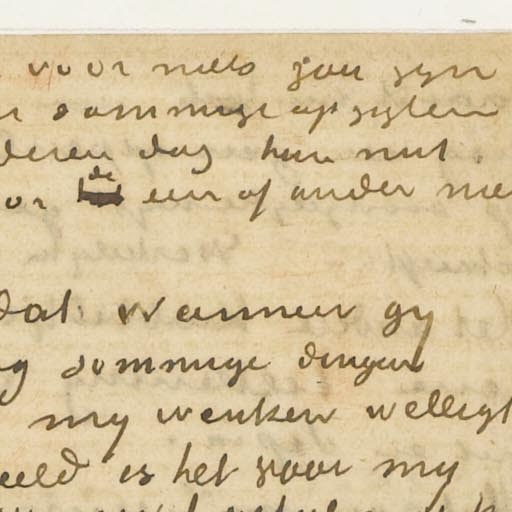 voor niets zou zyn
sommige opzigten
deren dag hun nut.
or de een of ander nie
dat wanneer gy
g sommige dingen
my wenken welligt
eeld is het voor my